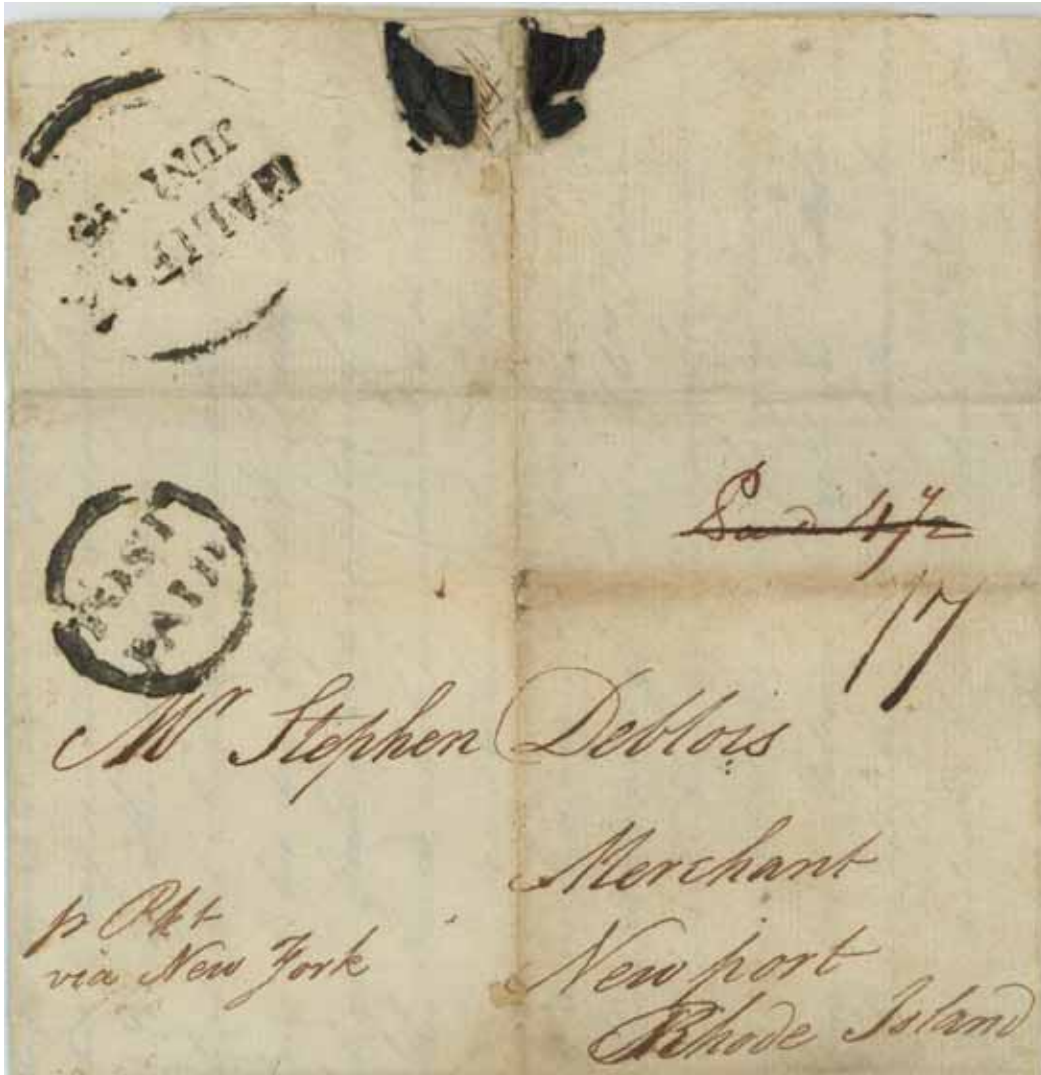 HALIFAX
JUN
POST
PAID
Paid 4/2
17
Mr Stephen Deblois
Merchant
Newport
Rhode Island
p Pkt
via New York